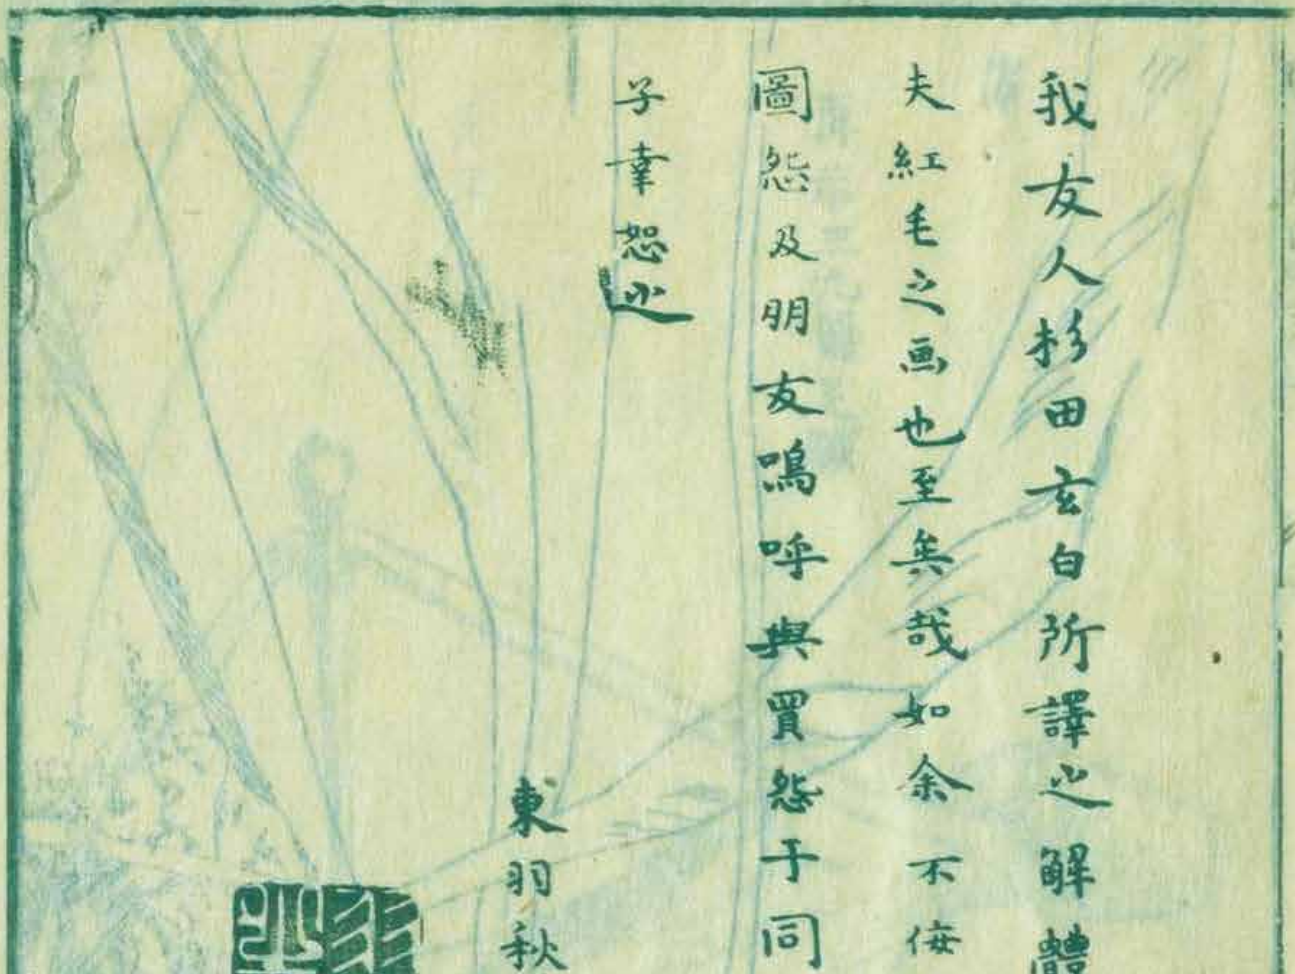 我友人杉田玄白所譯之解體
夫紅毛之画也至矣哉如余不侫
圖怨及朋友嗚呼與買怨于同
子幸恕之
東羽秋